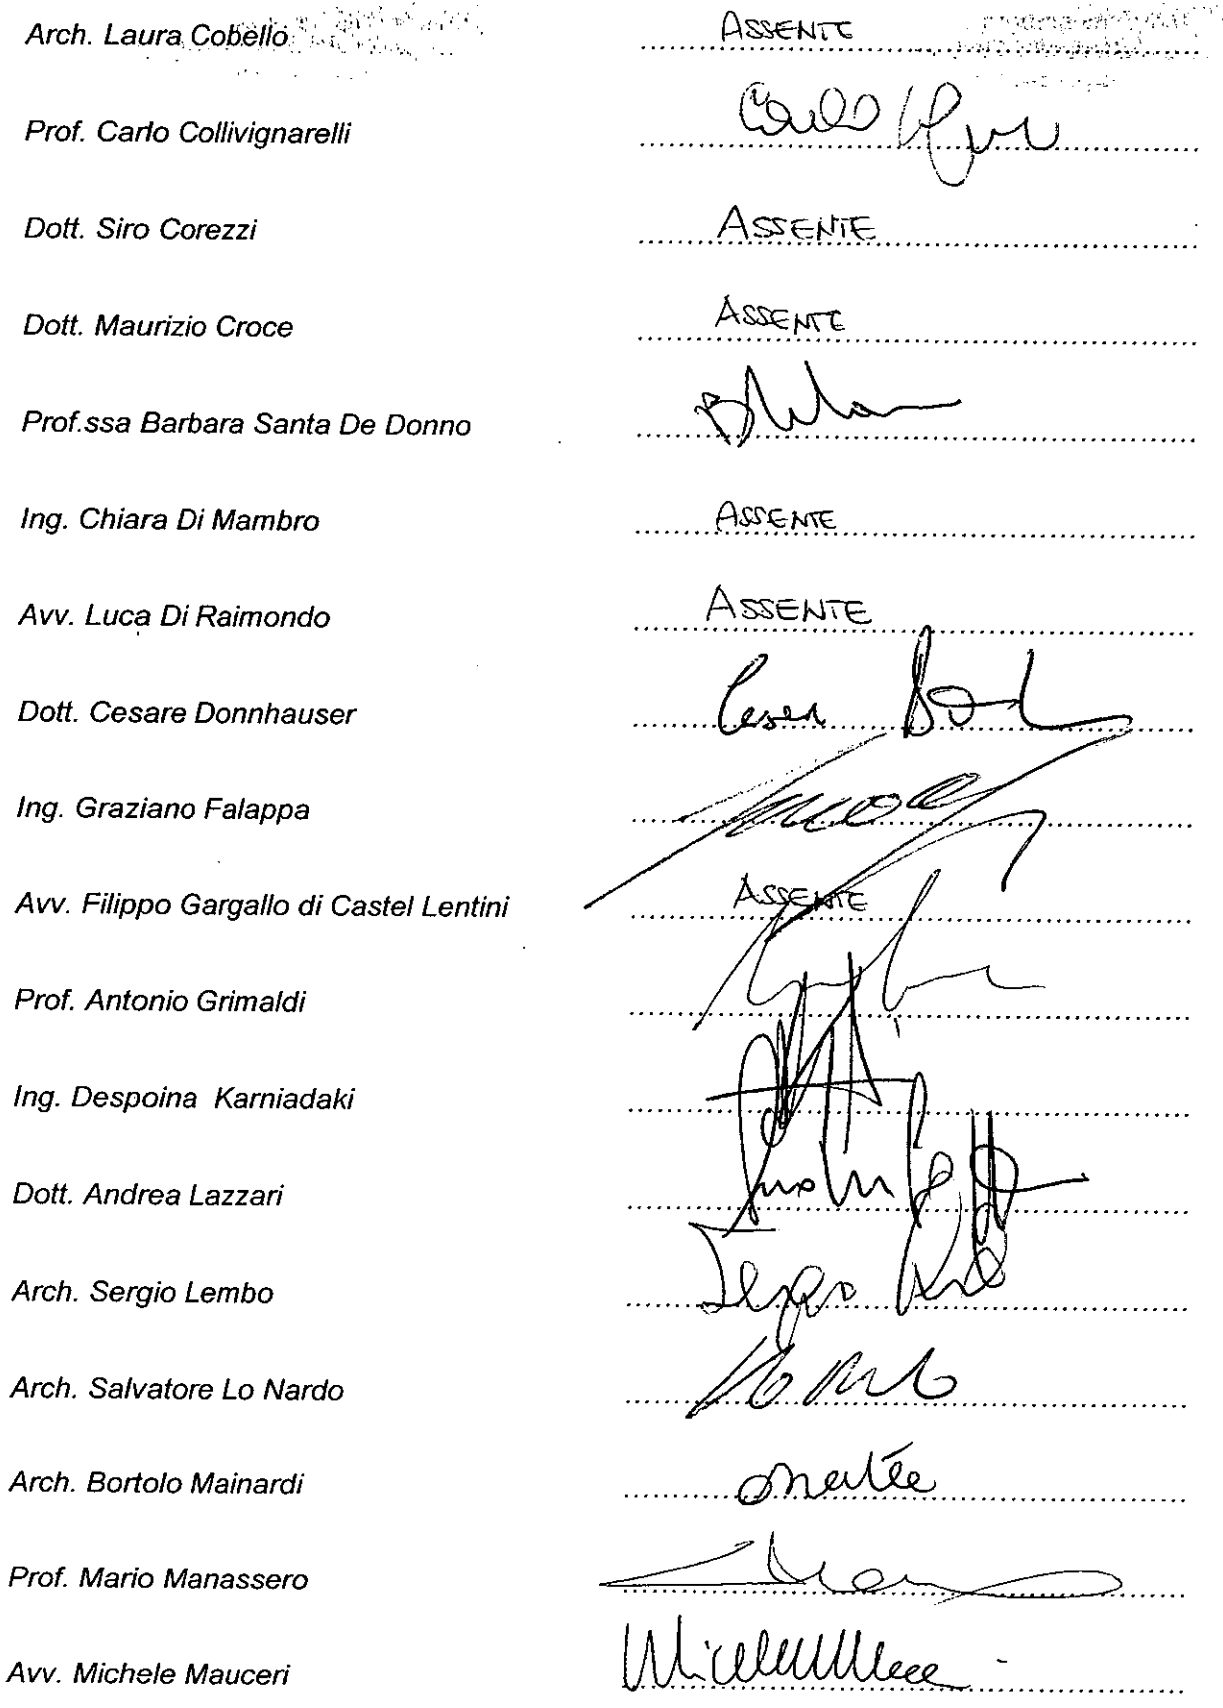 Arch. Laura Cobello ASSENTE
Prof. Carlo Collivignarelli Carlo
Dott. Siro Corezzi ASSENTE
Dott. Maurizio Croce ASSENTE
Prof.ssa Barbara Santa De Donno
Ing. Chiara Di Mambro ASSENTE
Avv. Luca Di Raimondo ASSENTE
Dott. Cesare Donnhauser
Ing. Graziano Falappa
Avv. Filippo Gargallo di Castel Lentini ASSENTE
Prof. Antonio Grimaldi
Ing. Despoina Karniadaki
Dott. Andrea Lazzari
Arch. Sergio Lembo Sergio
Arch. Salvatore Lo Nardo
Arch. Bortolo Mainardi
Prof. Mario Manassero
Avv. Michele Mauceri